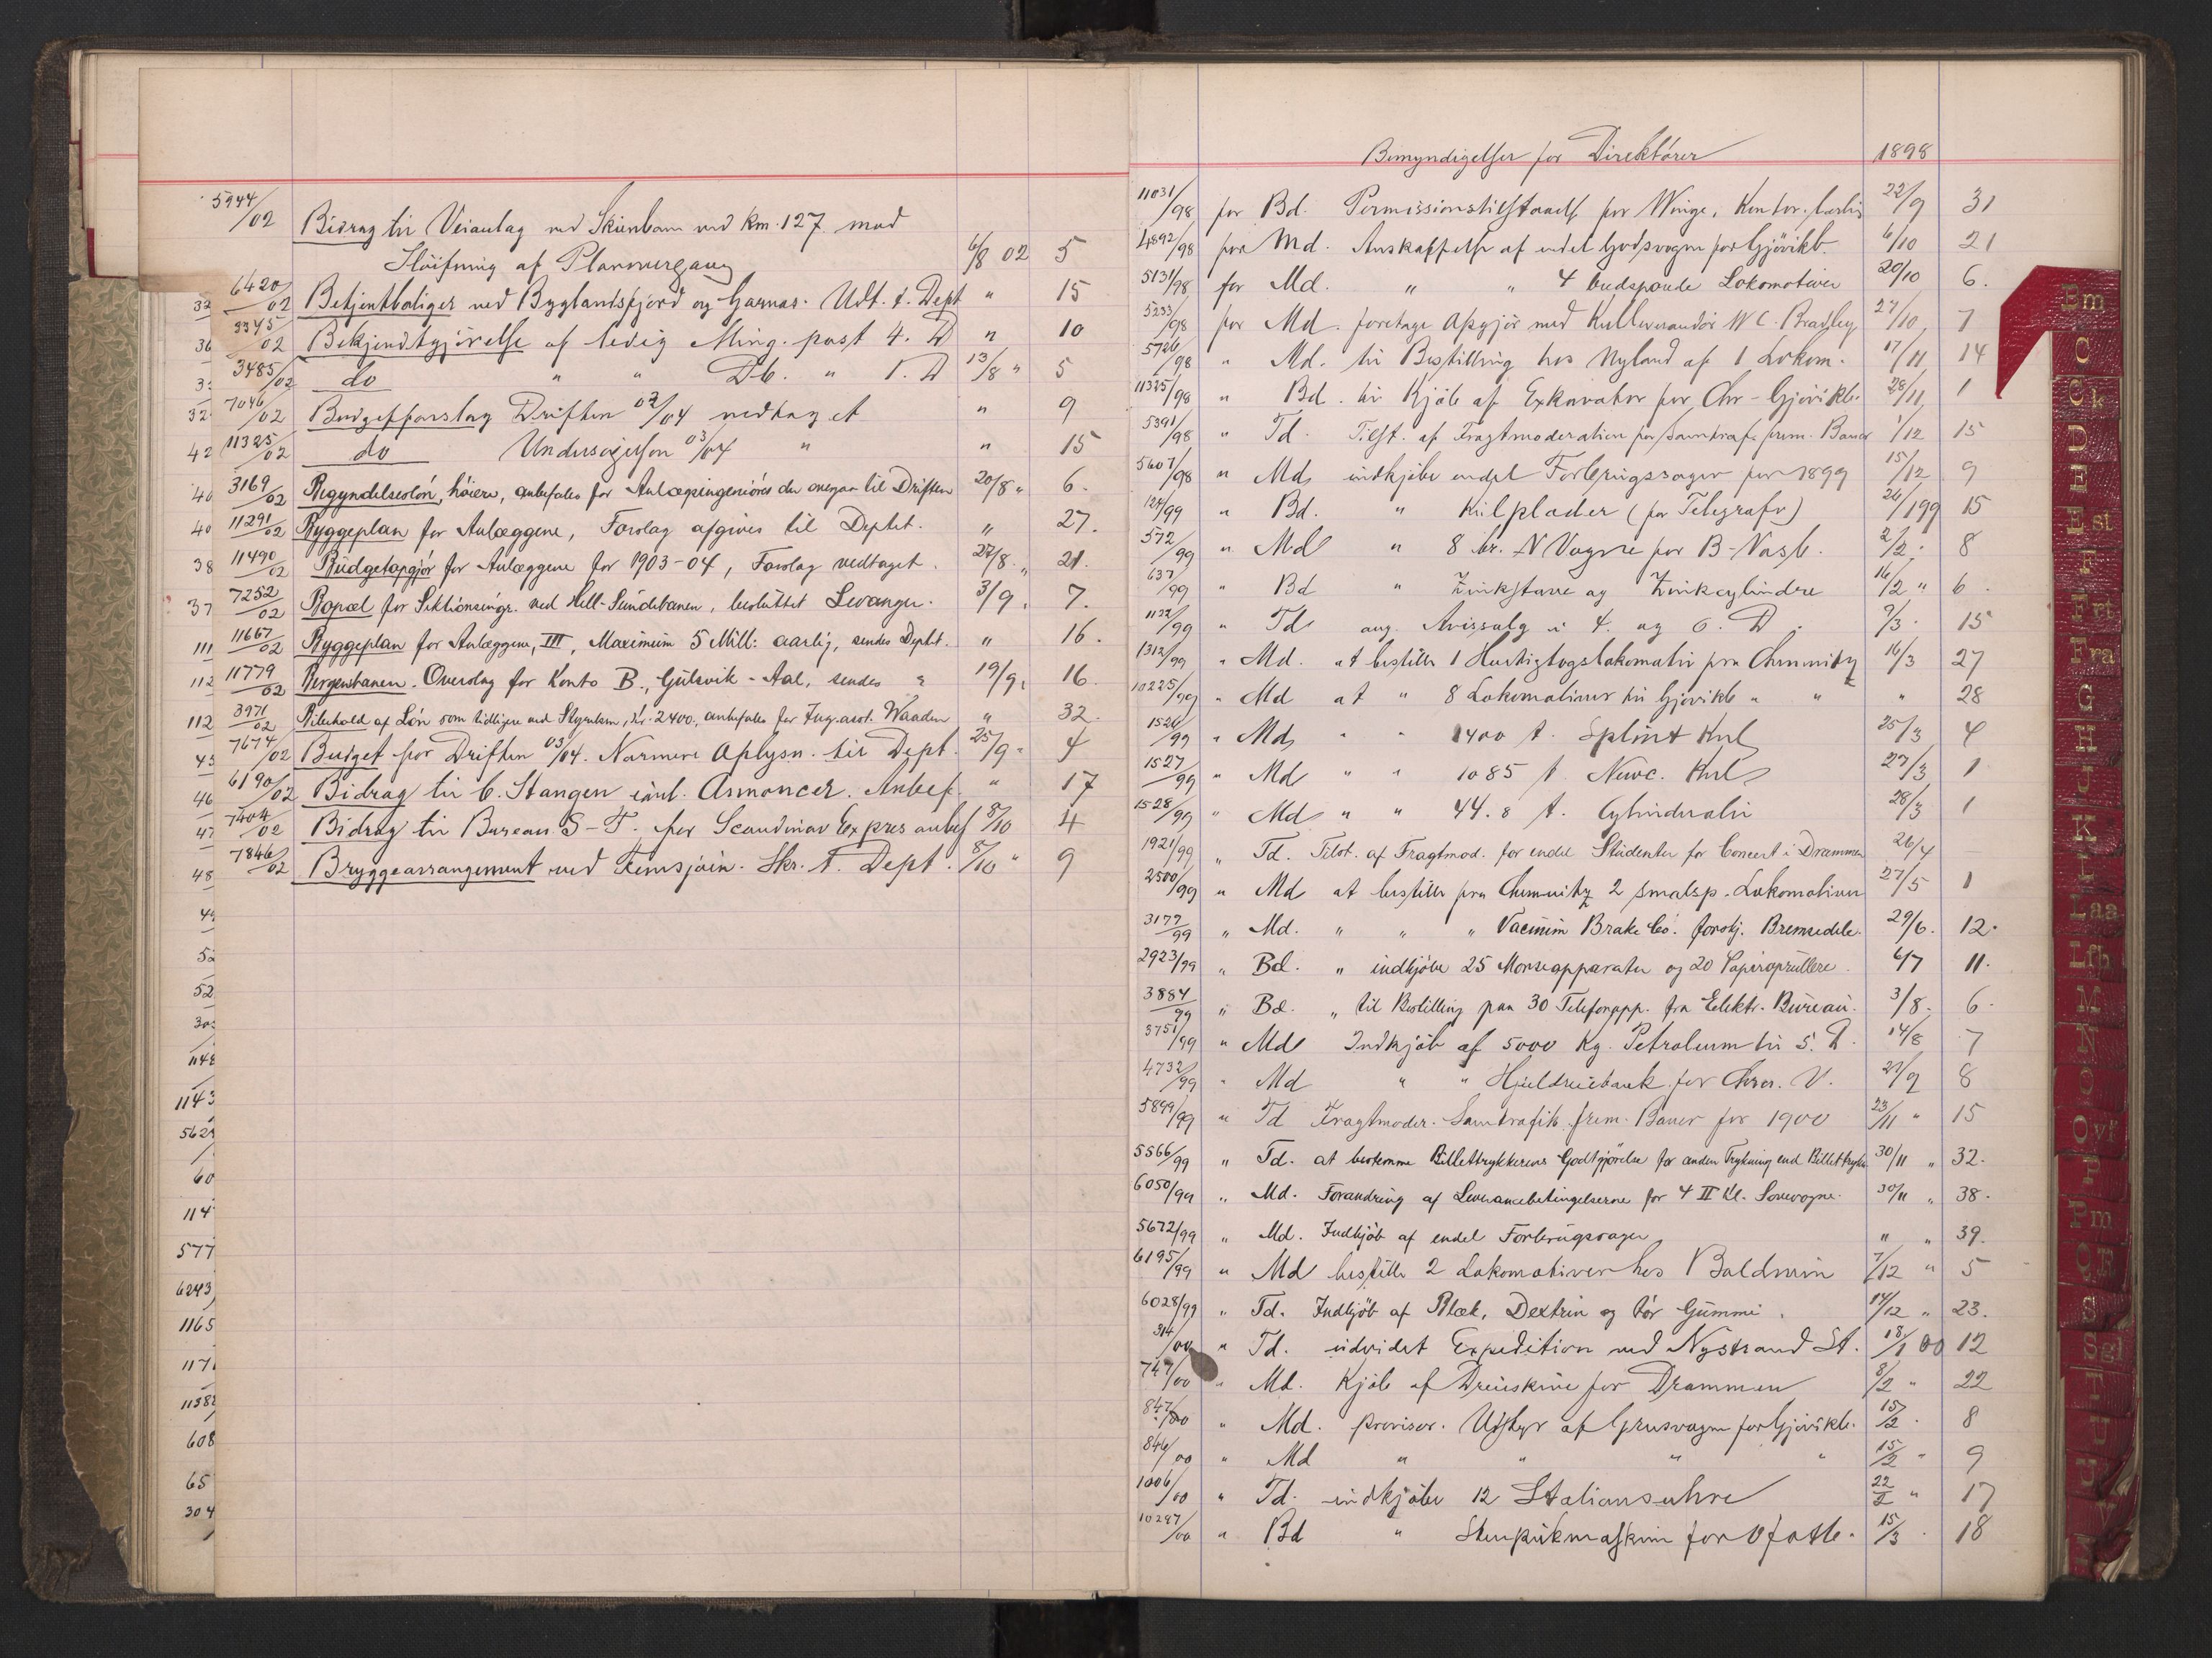 5944/02 Bidrag til Veianlæg ved Skienbanen ved km. 127 mod
Sløifning af Planovergang 6/8 02 5
6420/02 Betjentboliger ved Byglandsfjord og Hornæs. Udt. t. Dept " 15
3345/02 Bekjendtgjørelse af ledig Ming. post 4. D " 10
3485/02 do " " Db. " 1. D 13/8 " 5
7046/02 Budgetforslag Driften 03/04 vedtaget " 9
11325/02 do Undersøgelsen 03/04 " " 15
3169/02 Begyndelseslön, höiere, anbefales for Anlægsingeniörer der overgaar til Driften 20/8 " 6.
11291/02 Byggeplan for Anlæggene, Forslag afgives til Deptet. " 27.
11490/02 Budgetopgjör for Anlæggene for 1903-04, Forslag vedtaget. 27/8 " 21.
7252/02 Bopæl for Sektionsingr. ved Hell-Sundebanen, besluttet Levanger. 3/9 " 7.
11667/02 Byggeplan for Anlæggene, III, Maximum 5 Mill: aarlig, sendes Deptet. " 16.
11779/02 Bergensbanen. Overslag for Konto B., Gulsvik - Aal, sendes " 19/9 " 16.
3971/02 Bibehold af Lön som tidligere ved Styrelsen, Kr. 2400, anbefales for Ing. asst. Waaden " 32.
7674/02 Budget for Driften 03/04. Nærmere Oplysn. til Dept. 25/9 " 4
6190/02 Bidrag til C. Stangen eánl. Annoncer. Anbef. " 17
7404/02 Bidrag til Bureau S-F. for Scandinav Expres anbef 8/10 4
7846/02 Bryggearrangement ved Femsjøen. Skr. t. Dept. 8/10 " 9
Bemyndigelser for Direktører 1898
11031/98 for Bd. Permissionstilstaaelse for Winge, Kontor. 22/9 31
4892/98 for Md. Anskaffelse af endel Godsvogne for Gjøvikb. 6/10 21
5131/98 for Md. " " 4 bredsporede Lokomotiver 20/10 6.
5233/98 for Md. foretage Opgjør med Kulleverandør W C. Bradley 27/10 7
5726/98 " Md. til Bestilling hos Nyland af 1 Lokom. 17/11 14
11325/98 " Bd. til Kjøb af Exkavator for Chr-Gjøvikb. 28/11 1
5391/98 " Td. Tilst. af Fragtmoderation for Samtrafik frem. Baner 1/12 15
5607/98 " Md. indkjøbe endel Forbrugssager for 1899 15/12 9
124/99 " Bd. " Kulplader (for Telegrafv) 26/1 99 15
572/99 " Md " 8 br. N Vogne for B-Nasb. 2/2. 8
637/99 " Bd " Zinkstave og Zinkcylindre 16/2 " 6
1132/99 " Td ang. Avissalg i 4. og 6. D. 9/3. 15
1312/99 " Md. at bestille 1 Hurtigtogslokomotiv fra Chemnitz 16/3 27
10225/99 " Md at " 8 Lokomotiver til Gjøvikb " " " 28
1526/99 " Md " " 1400 t. Splint Kul 25/3 4
1527/99 " Md " " 1085 t. Newc. Kul 27/3 1
1528/99 " Md " " 44.8 t. Cylinderolie 28/3 1
1921/99 " Td. Tilst. af Fragtmod. for endel Studenter for Concert i Drammen 26/4
2500/99 " Md at bestille fra Chemnitz 2 smalsp. Lokomotiver 27/5 1
3177/99 " Md. " " " Vacuum Brake Co. forskj. Bremsedele. 29/6. 12.
2923/99 " Bd. " indkjøbe 25 Morseapparater og 20 Papiroprullere. 6/7 11.
3884/99 " Bd. " til Bestilling paa 30 Telefonapp. fra Elektr. Bureau. 3/8. 6.
3751/99 " Md Indkjøb af 5000 Kg. Petroleum til 5. D. 14/8 7
4732/99 " Md " " Hjuldreiebænk for Chra. V. 27/9 8
5899/99 " Td Fragtmoder. Samtrafik frem. Baner for 1900 23/11 " 15
5566/99 " Td. at bestemme Billettrykkerens Godtgjörelse for anden Trykning end Billettrykn 30/11 " 32.
6050/99 " Md. Forandring af Leverancebetingelserne for 4 II Kl. Sovevogne. 30/11 " 38.
5672/99 " Md. Indkjöb af endel Forbrugssager " " 39.
6195/99 " Md bestille 2 Lokomotiver hos Baldwin 7/12 " 5
6028/99 " Td. Indkjöb af Blæk, Dextrin og tör Gummi. 14/12 " 23.
314/00 " Td. udvidet Expedition ved Nystrand St. 18/1 00 12
747/00 " Md. Kjøb af Dreieskive for Drammen 8/2 " 22
847/00 " Md. provisor. Udstyr af Grusvogne for Gjøvikb. 15/2. 8
846/00 " Md " " " " 15/2 " 9
1006/00 " Td. indkjøbe 12 Stationsuhre 22/2 " 17
10297/00 " Bd " Stenpukmaskine for Ofotb. 15/3. 18
Bm
C
Ck
D
E
Est
F
Frt
Fra
G
H
J
K
L
Laa
Lfh
M
N
O
Ovf
P
Pm
Q R
S
Sgl
T
U
V